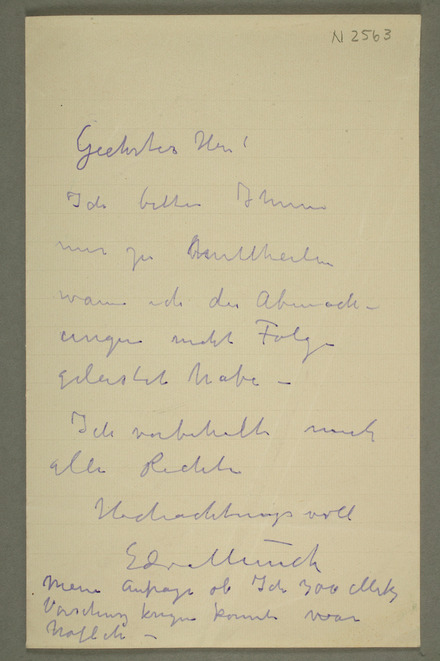 N 2563
Geehrter Herr!
Ich bitte Ihnen
mir zu
wann ich die Abmach-
ungen nicht Folge
geleistet habe –
Ich vorbehalte mich
alle Rechte
Hochachtungsvoll
Edv. Munch
Meine Anfrage ob Ich 300 Mk
Vorschuss kriegen konnte war
höflich –